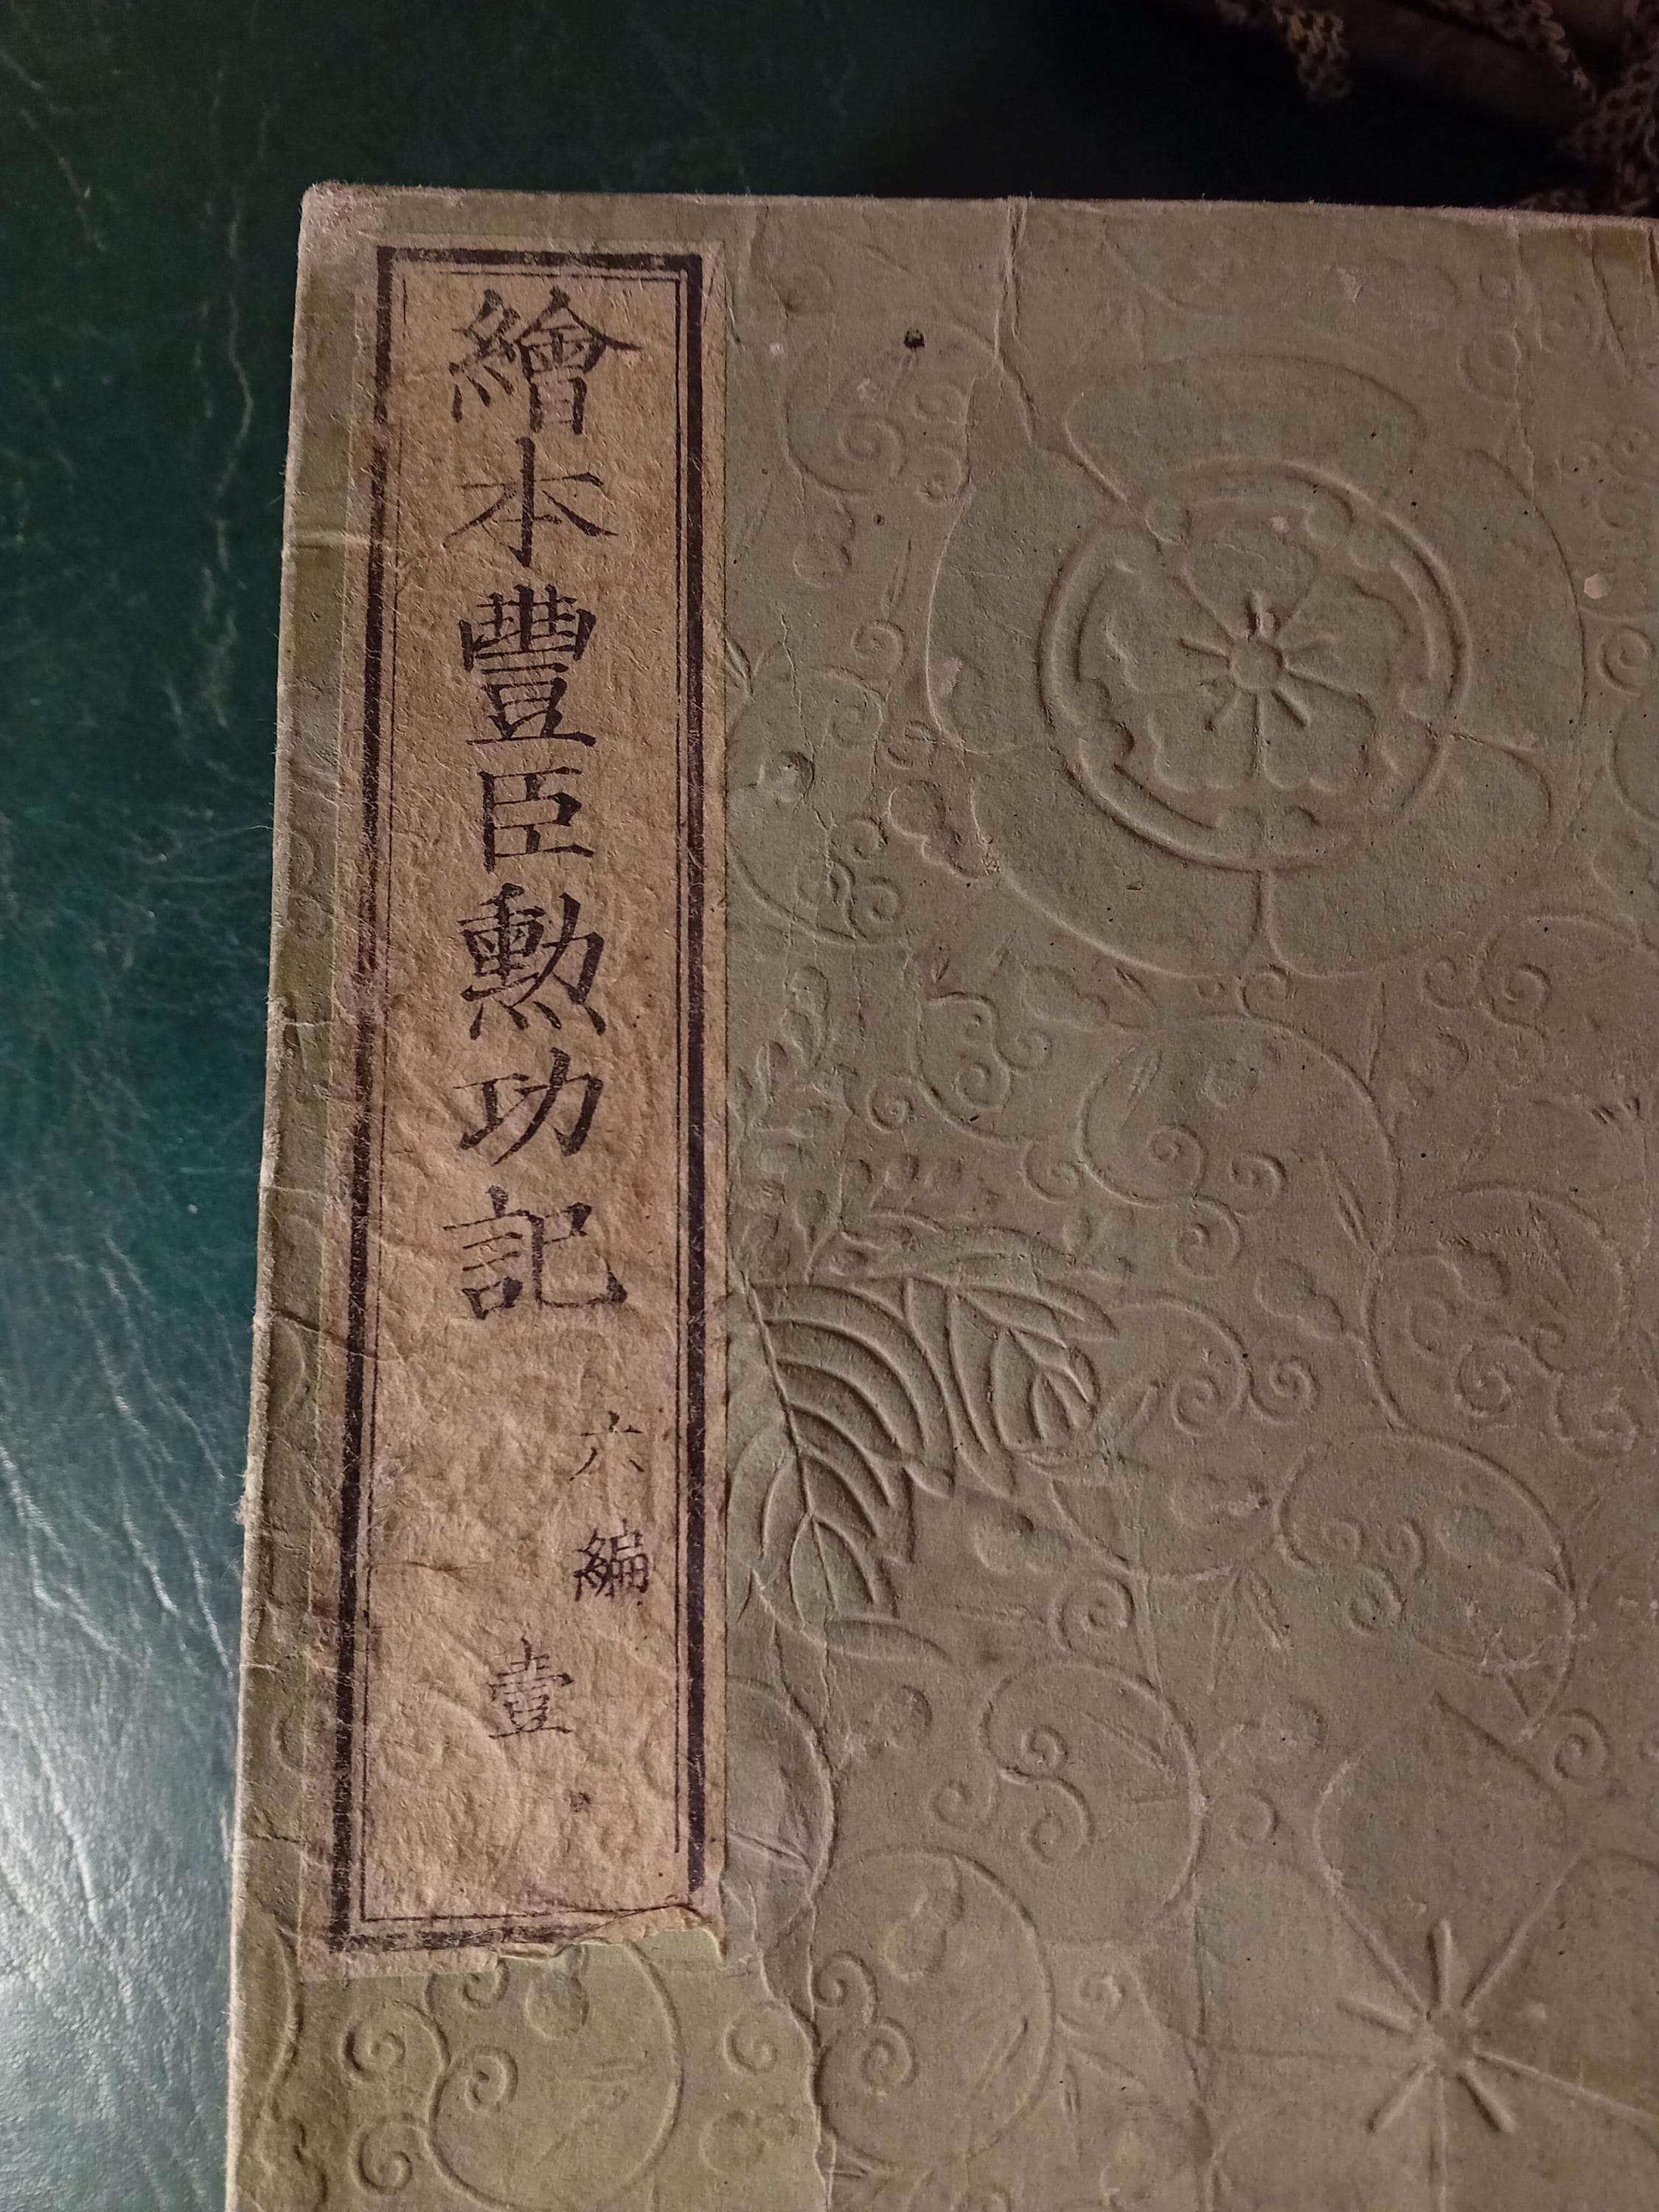 繪本豐臣勳功記
六編
壹